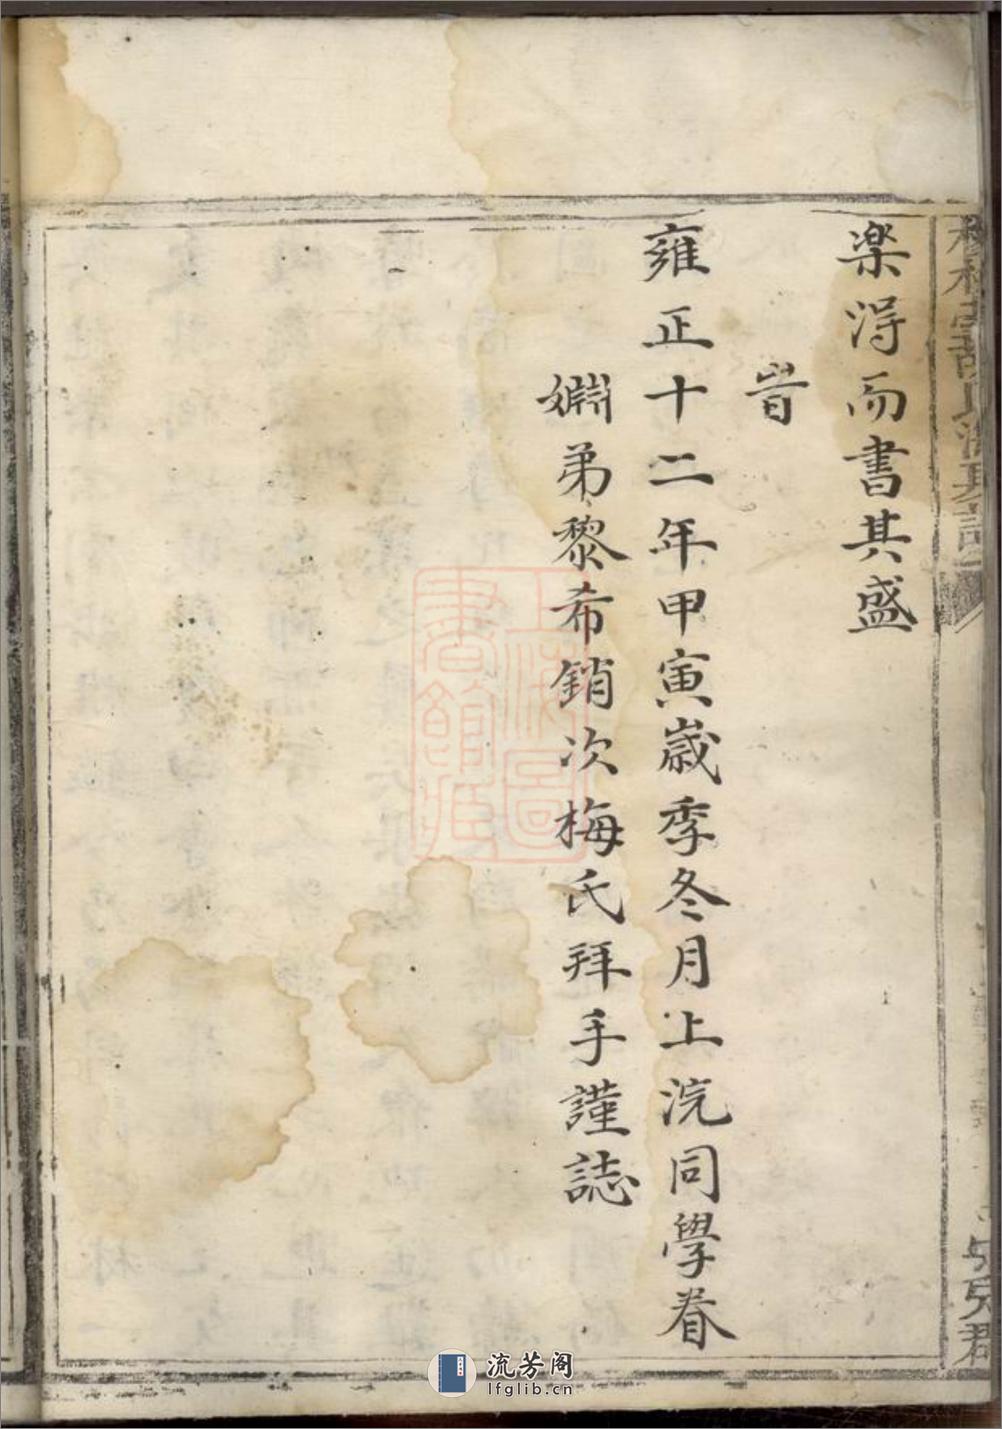 楽淂而書其盛
旹
雍正十二年甲寅歲季冬月上浣同學眷
婣弟黎希銷次梅氏拜手謹誌
上海圖
書館藏
流芳阁
lfglib.cn